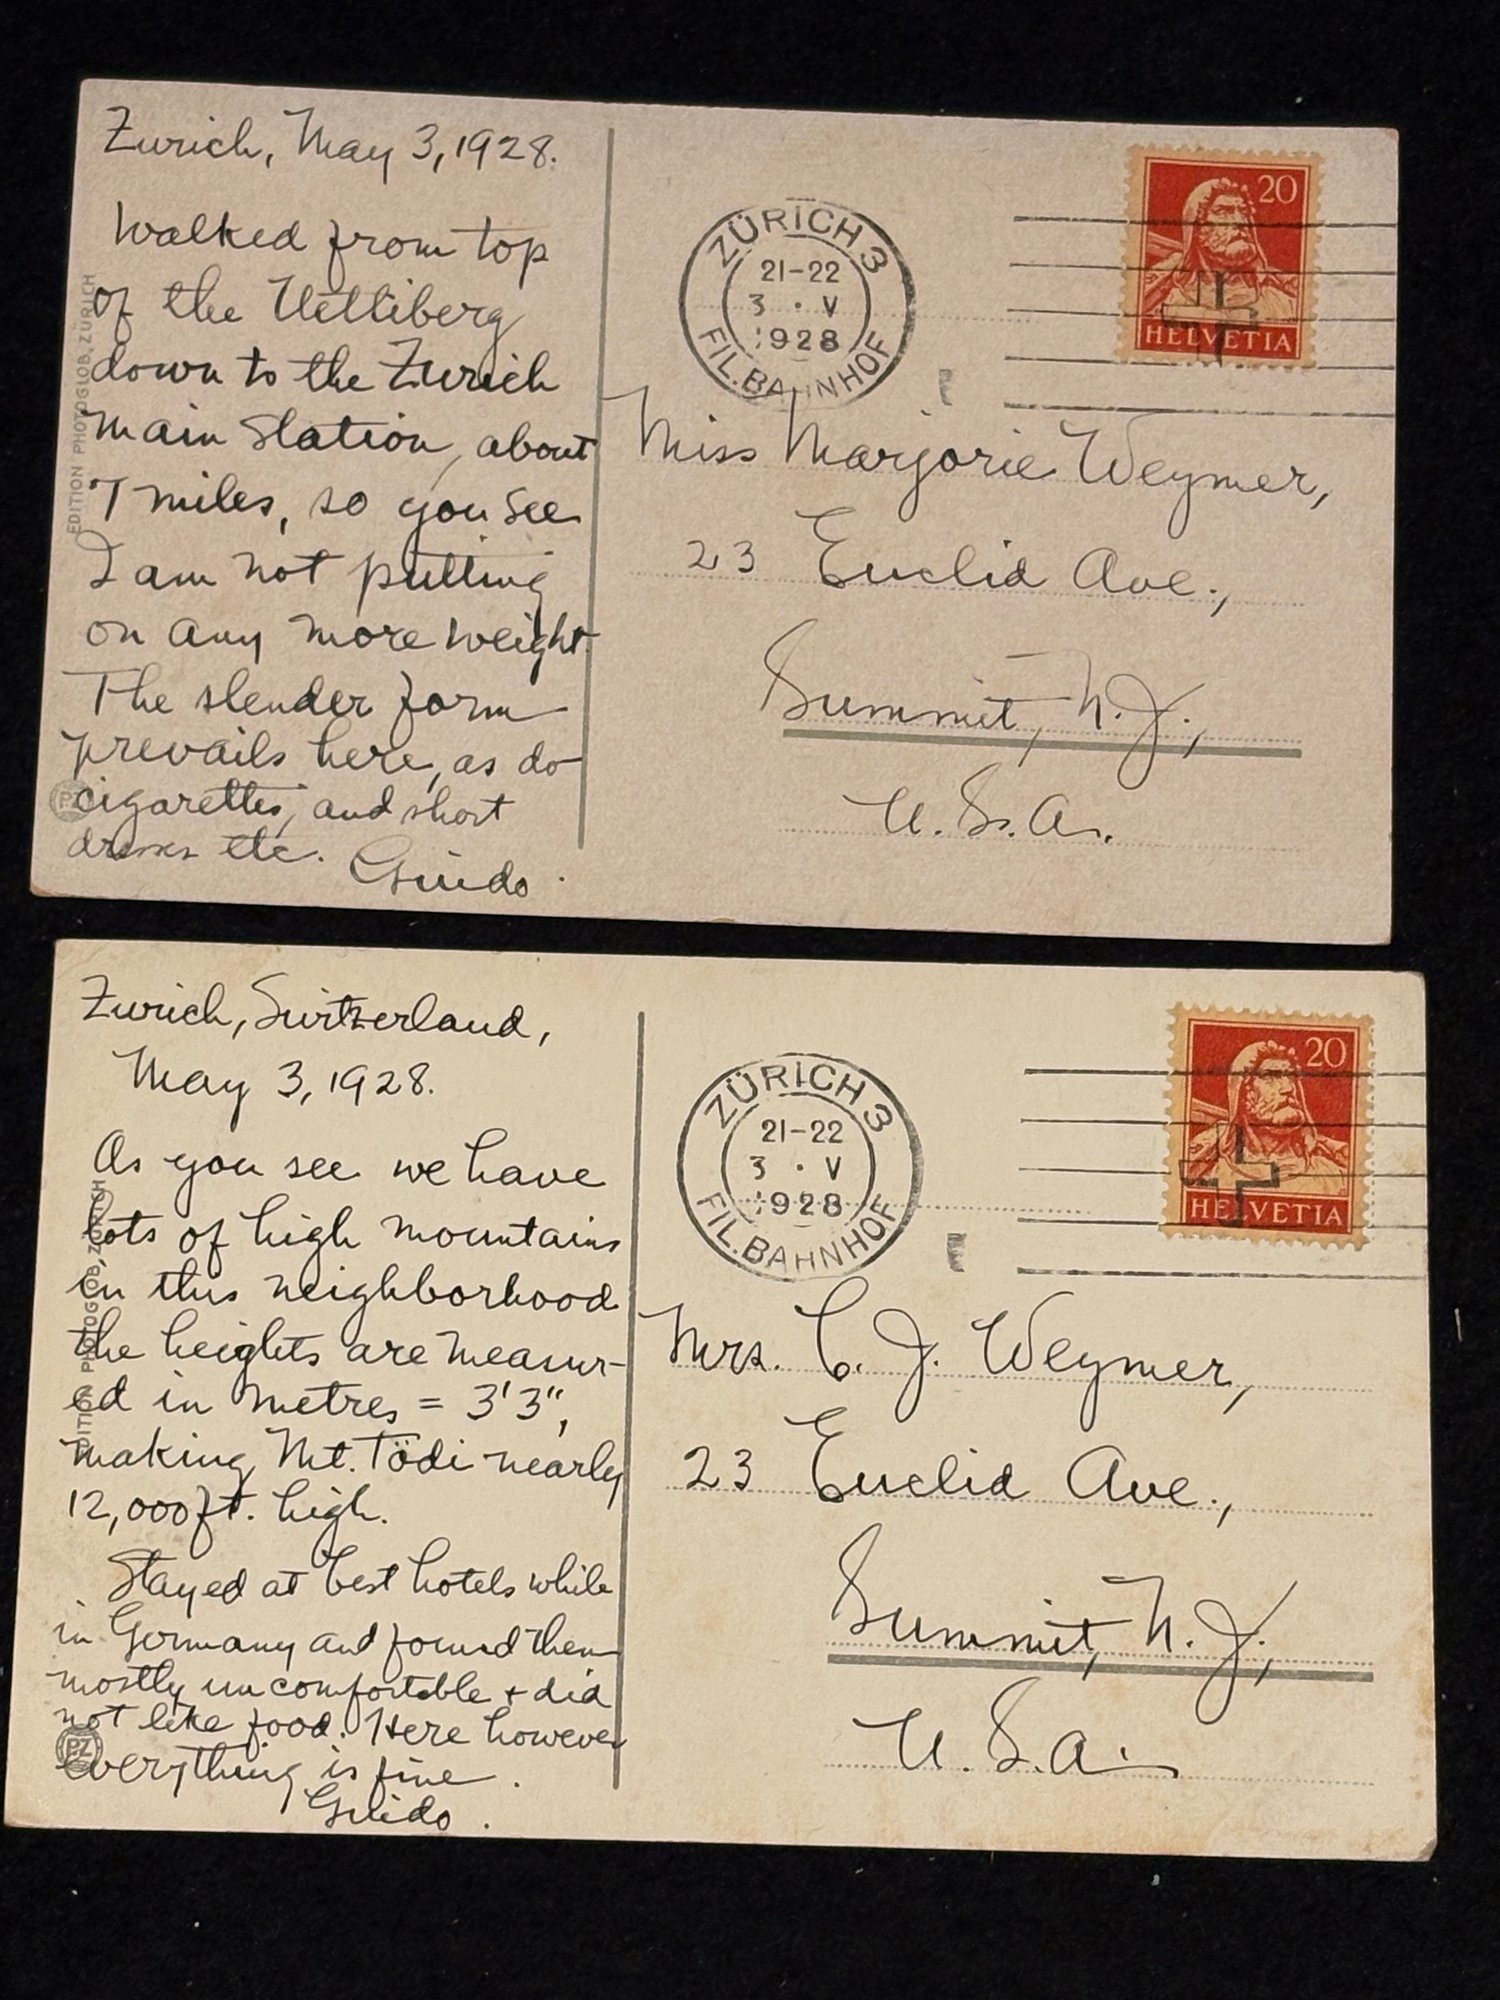 Zurich, May 3, 1928.
Walked from top
of the Uetliberg
down to the Zurich
Main Station, about
7 miles, so you see
I am not putting
on any more weight.
The slender form
prevails here, as do
cigarettes, and short
dresses etc.
Guido.
EDITION PHOTOGLOB, ZÜRICH
PZ
ZÜRICH 3
21-22
3 · V
1928
FIL. BAHNHOF
20
HELVETIA
Miss Marjorie Weymer,
23 Euclid Ave.,
Summit, N.J.,
U.S.A.
Zurich, Switzerland,
May 3, 1928.
As you see we have
lots of high mountains
in this neighborhood
the heights are measur-
ed in metres = 3'3",
making Mt. Tödi nearly
12,000 ft. high.
Stayed at best hotels while
in Germany and found them
mostly uncomfortable + did
not like food. Here however
everything is fine.
Guido.
EDITION PHOTOGLOB, ZÜRICH
PZ
ZÜRICH 3
21-22
3 · V
1928
FIL. BAHNHOF
20
HELVETIA
Mrs. C. J. Weymer,
23 Euclid Ave.,
Summit, N.J.,
U.S.A.